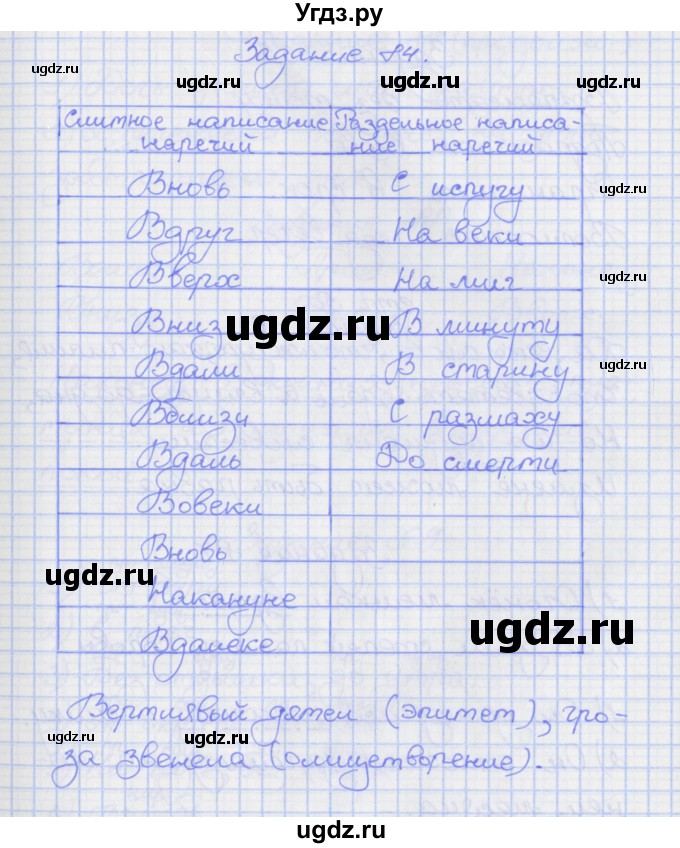 Угдз.ру
Задание 84.
ugdz.ru
ugdz.ru
ugdz.ru
Слитное написание наречий
Раздельное написа-
ние наречий
Вновь С испугу
ugdz.ru
Вдруг На веки
Вверх На миг
ugdz.ru
Вниз В минуту
ugdz.ru
Вдали В старину
ugdz.ru
Вблизи С размаху
Вдаль До смерти
Вовеки
Вновь
ugdz.ru
Накануне
Вдалеке
ugdz.ru
Вертлявый дятел (эпитет), гро-
ugdz.ru
ugdz.ru
за звенела (олицетворение).
ugdz.ru
ugdz.ru